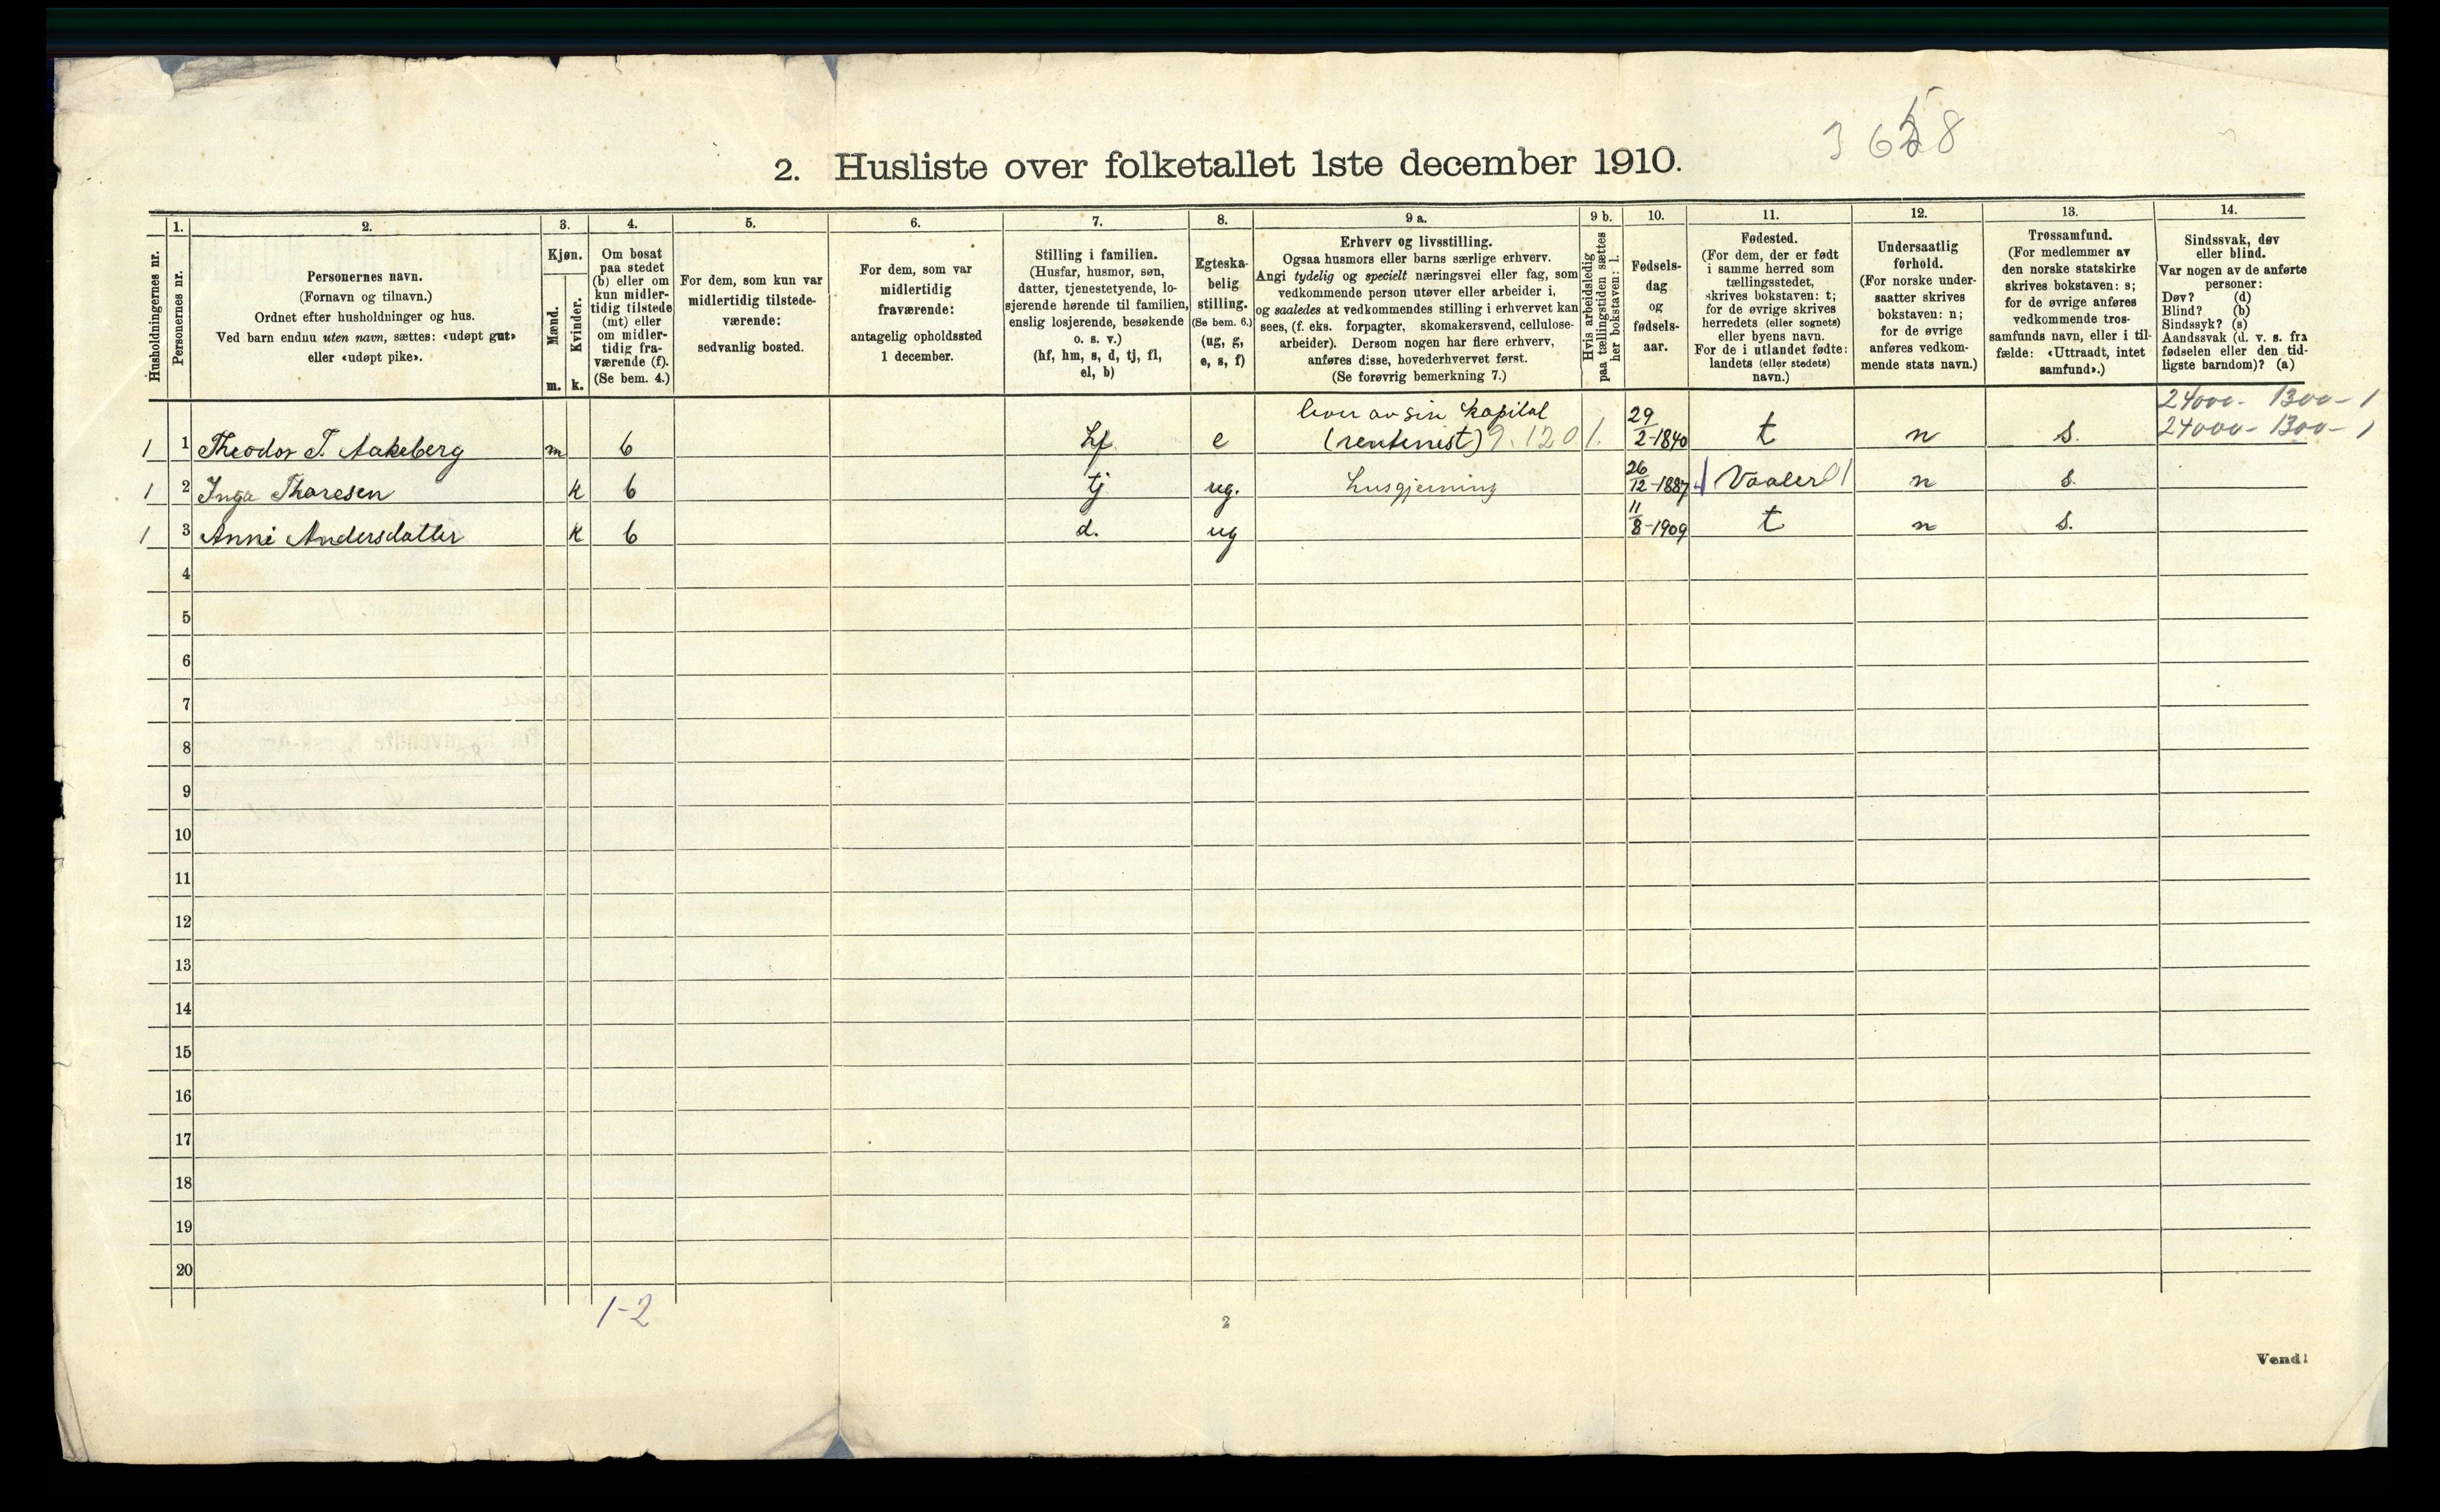 3658
2. Husliste over folketallet 1ste december 1910.
Husholdningernes nr.
1.
Personernes nr.
2.
Personernes navn.
(Fornavn og tilnavn.)
Ordnet efter husholdninger og hus.
Ved barn endnu uten navn, sættes: «udøpt gut»
eller «udøpt pike».
3.
Kjøn.
Mænd.
m.
Kvinder.
k.
4.
Om bosat
paa stedet
(b) eller om
kun midler-
tidig tilstede
(mt) eller
om midler-
tidig fra-
værende (f).
(Se bem. 4.)
5.
For dem, som kun var
midlertidig tilstede-
værende:
sedvanlig bosted.
6.
For dem, som var
midlertidig
fraværende:
antagelig opholdssted
1 december.
7.
Stilling i familien.
(Husfar, husmor, søn,
datter, tjenestetyende, lo-
sjerende hørende til familien,
enslig losjerende, besøkende
o. s. v.)
(hf, hm, s, d, tj, fl,
el, b)
8.
Egteska-
belig
stilling.
(Se bem. 6.)
(ug, g,
e, s, f)
9 a.
Erhverv og livsstilling.
Ogsaa husmors eller barns særlige erhverv.
Angi tydelig og specielt næringsvei eller fag, som
vedkommende person utøver eller arbeider i,
og saaledes at vedkommendes stilling i erhvervet kan
sees, (f. eks. forpagter, skomakersvend, cellulose-
arbeider). Dersom nogen har flere erhverv,
anføres disse, hovederhvervet først.
(Se forøvrig bemerkning 7.)
9 b.
Hvis arbeidsledig
paa tællingstiden sættes
her bokstaven: l.
10.
Fødsels-
dag
og
fødsels-
aar.
11.
Fødested.
(For dem, der er født
i samme herred som
tællingsstedet,
skrives bokstaven: t;
for de øvrige skrives
herredets (eller sognets)
eller byens navn.
For de i utlandet fødte:
landets (eller stedets)
navn.)
12.
Undersaatlig
forhold.
(For norske under-
saatter skrives
bokstaven: n;
for de øvrige
anføres vedkom-
mende stats navn.)
13.
Trossamfund.
(For medlemmer av
den norske statskirke
skrives bokstaven: s;
for de øvrige anføres
vedkommende tros-
samfunds navn, eller i til-
fælde: «Uttraadt, intet
samfund».)
14.
Sindssvak, døv
eller blind.
Var nogen av de anførte
personer:
Døv? (d)
Blind? (b)
Sindssyk? (s)
Aandssvak (d. v. s. fra
fødselen eller den tid-
ligste barndom)? (a)
lever av sin kapital 24000- 1300- 1
1 1 Theodor T. Aakeberg m b hf e (rentenist) 9.120 1. 29/2-1840 t n s. 24000- 1300- 1
1 2 Inga Thoresen k b tj ug. husgjerning 26/12-1887 Vaaler n s.
1 3 Anni Andersdatter k b d. ug 11/8-1909 t n s.
4
5
6
7
8
9
10
11
12
13
14
15
16
17
18
19
20
1-2
2
Vend!